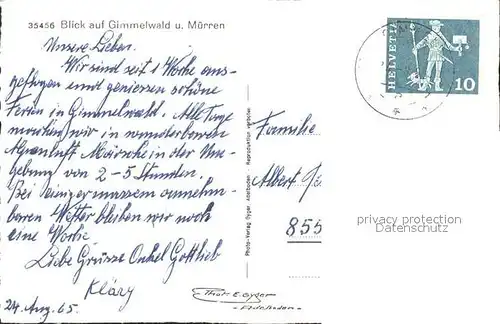 35456 Blick auf Gimmelwald u. Mürren
Unsere Lieben.
Wir sind seit 1 Woche aus-
geflogen und geniessen schöne
Ferien in Gimmelwald. Alle Tage
machen wir in wunderbarer
Alpenluft Märsche in der Um-
gebung von 2-5 Stunden.
Bei einigermassen annehm-
baren Wetter bleiben wir noch
eine Woche.
Liebe Grüsse Onkel Gottlieb
Kläry
24. Aug. 65.
Photo-Verlag Gyger, Adelboden Reproduktion verboten
HELVETIA
10
Familie
Albert
855
privacy protection
Datenschutz
Phot. E. Gyger
Adelboden